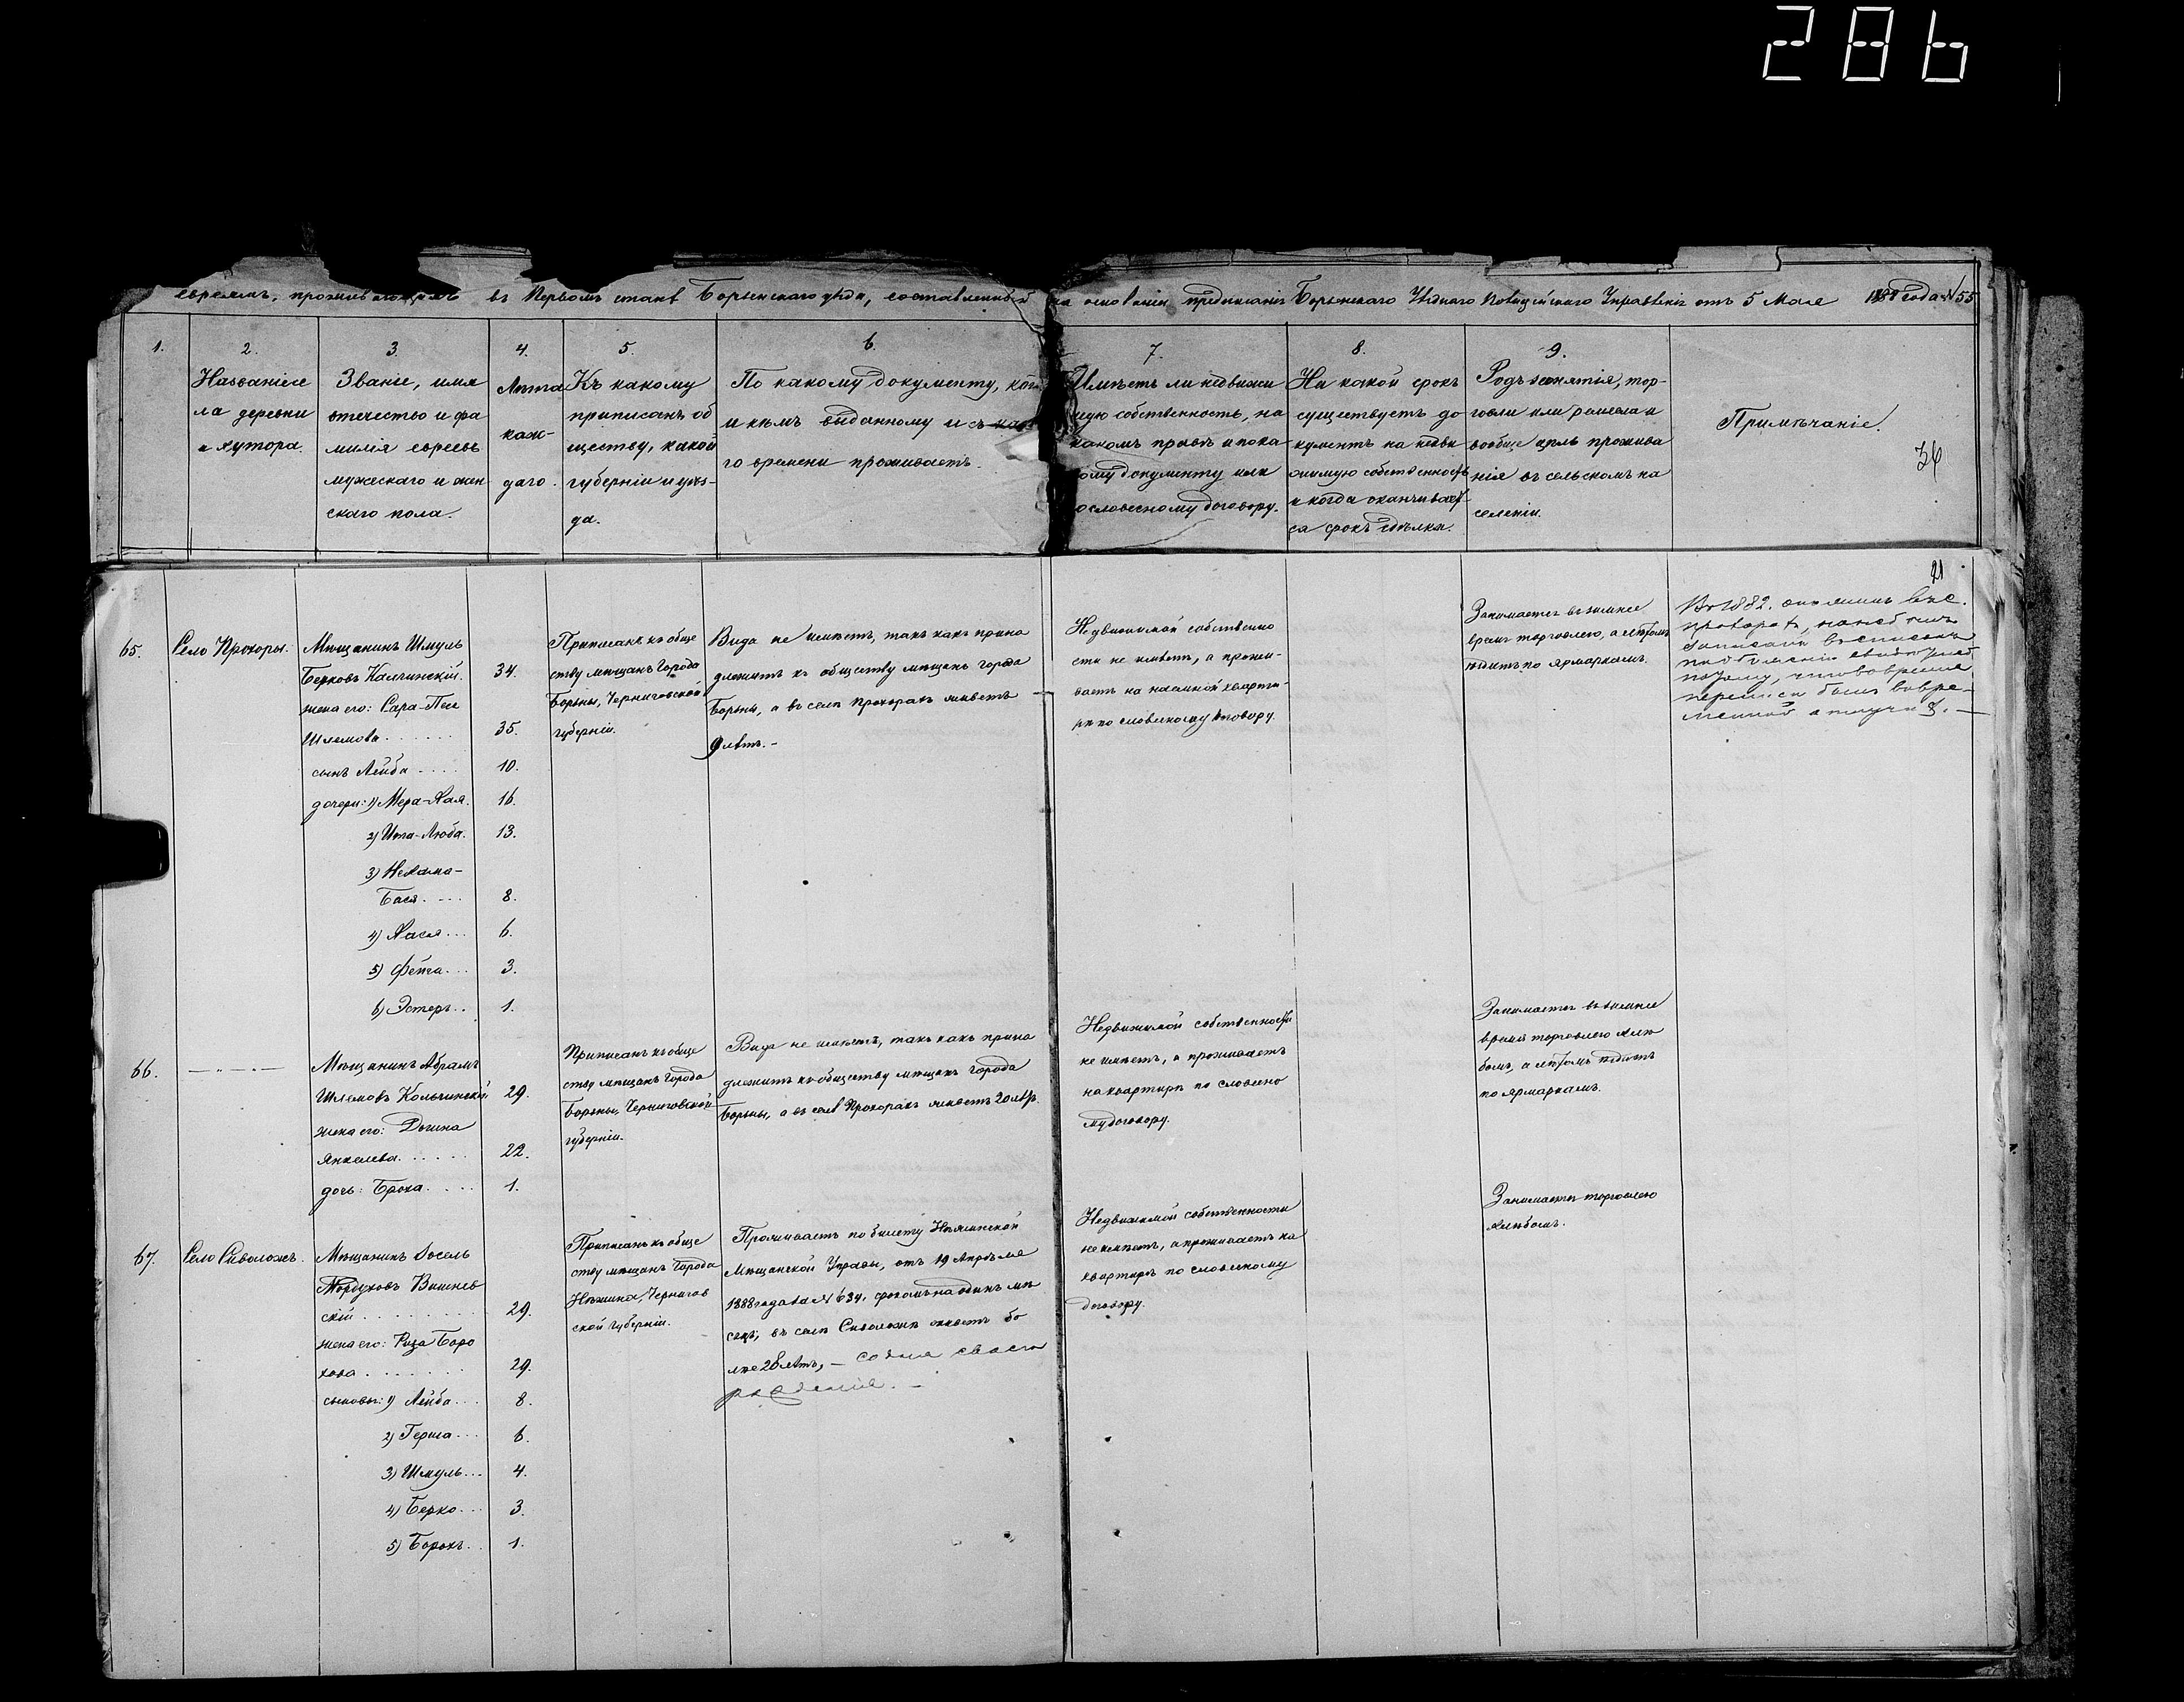 286
евреямъ, проживающимъ въ Первомъ станѣ Борзенскаго уѣзда, составленный на основаніи предписанія Борзенскаго Уѣзднаго Полицейскаго Управленія отъ 5 Мая 1888 года № 55
1.
2.
Названіе се
ла деревни
и хутора.
3.
Званіе, имя
отечество и фа
милія евреевъ
мужескаго и жен
скаго пола.
4.
Лѣта
каж-
даго.
5.
Къ какому
приписанъ об
ществу, какой
губерніи и уѣз-
да.
6.
По какому документу, ког
и кѣмъ выданному и съ как
го времени проживаетъ.
7.
Имѣетъ ли недвижи
мую собственность, на
какомъ правѣ и по ка
кому документу или
по словесному договору.
8.
На какой срокъ
существуетъ до
кументъ на недви
жимую собственность
и когда оканчивает
ся срокъ сдѣлки.
9.
Родъ занятія, тор-
говли или ремесла и
вообще цѣль прожива
нія въ сельскомъ на
селеніи.
Примѣчаніе.
36
21
65.
Село Прохоры.
Мѣщанинъ Шмуль
Берковъ Калчинскій. 34.
жена его: Сара-Песе
Шлемова 35.
сынъ Лейба 10.
дочери: 1) Мера-Хая. 16.
2) Ита-Люба. 13.
3) Нехама-
Бася. 8.
4) Хася 6.
5) Фейга 3.
6) Эстеръ 1.
Приписанъ къ обще
ству мѣщанъ города
Борзны, Черниговской
губерніи.
Вида не имѣетъ, такъ какъ прина
длежитъ къ обществу мѣщанъ города
Борзны, а въ селѣ Прохорахъ живетъ
9 лѣтъ. -
Недвижимой собственно
сти не имѣетъ, а прожи-
ваетъ на наемной кварти-
рѣ по словесному договору.
Занимается въ зимнее
время торговлею, а лѣтомъ
ѣздитъ по ярмаркамъ.
Въ 1882. онъ жилъ въ с.
Прохорахъ, но не былъ
записанъ въ списокъ
потому, что во время
переписи былъ во вре-
менной отлучкѣ. —
66.
— " — " —
Мѣщанинъ Абрамъ
Шлемовъ Кольчинскій 29.
жена его: Двгина
Янкелева 22.
дочь: Броха 1.
Приписанъ къ обще
ству мѣщанъ города
Борзны, Черниговской
губерніи.
Вида не имѣетъ, такъ какъ прина
длежитъ къ обществу мѣщанъ города
Борзны, а въ селѣ Прохорахъ живетъ 20 лѣтъ.
Недвижимой собственности
не имѣетъ, а проживаетъ
на квартирѣ по словесно
му договору.
Занимается въ зимнее
время торговлею хлѣ
бомъ, а лѣтомъ ѣздитъ
по ярмаркамъ.
67.
Село Сиволожъ.
Мѣщанинъ Іосель
Мордуховъ Вишнев
скій 29.
жена его: Риза Боро
хова 29.
сыновья: 1) Лейба 8.
2) Герша 6.
3) Шмуль 4.
4) Берко 3.
5) Борохъ 1.
Приписанъ къ обще
ству мѣщанъ города
Нѣжина, Чернигов
ской губерніи.
Проживаетъ по билету Нѣжинской
Мѣщанской Управы, отъ 19 Апрѣля
1888 года за № 634, срокомъ на одинъ мѣ
сяцъ; въ селѣ Сиволожѣ живетъ бо
лѣе 28 лѣтъ, — со дня своего
рожденія. —
Недвижимой собственности
не имѣетъ, а проживаетъ на
квартирѣ по словесному
договору.
Занимается торговлею
хлѣбомъ.